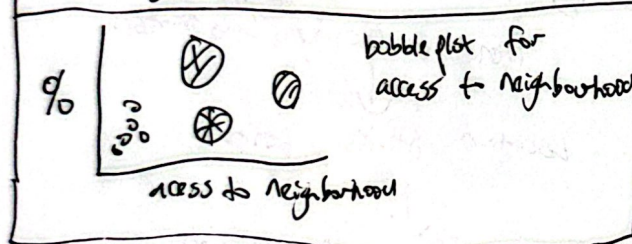 bobble plot for
access to neighbourhood
%
access to neighborhood